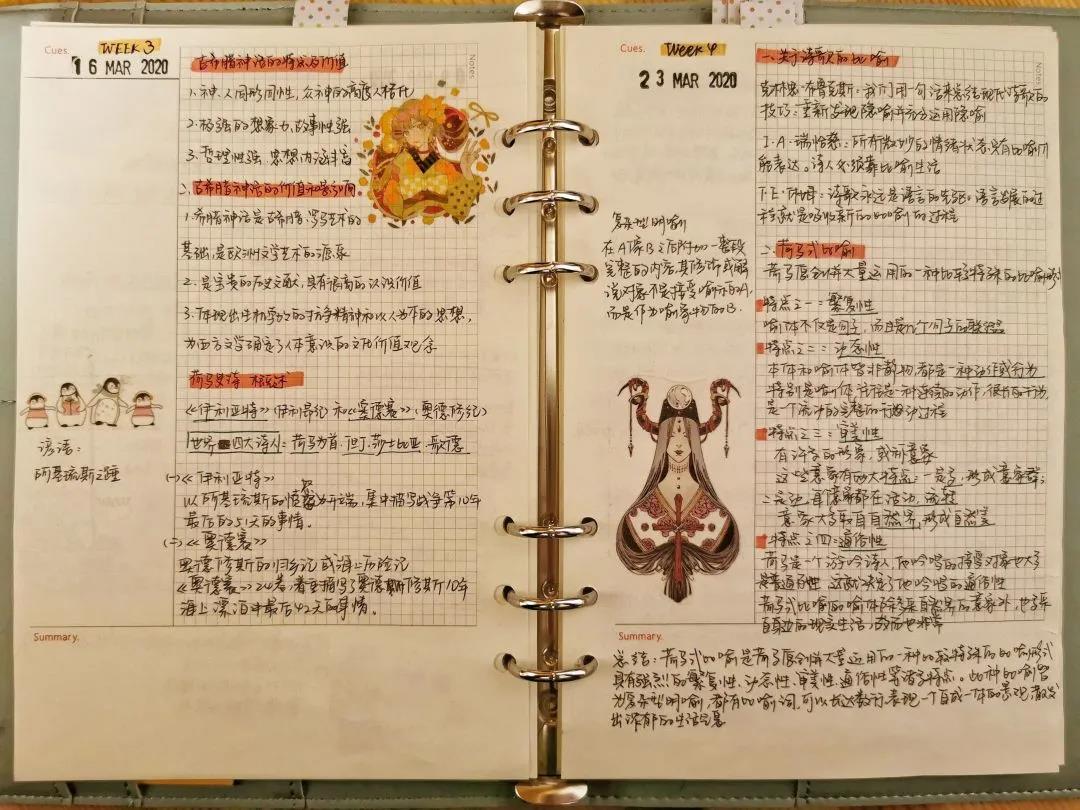 Cues.
WEEK 3
16 MAR 2020
Notes
古希腊神话的特点及价值
1.神、人同形同性，众神的高度人格化
2.极强的想象力,故事性强
3.哲理性强,思想内涵丰富
2.古希腊神话的价值和影响
1.希腊神话是古希腊、罗马艺术的
基础,是欧洲文学艺术的源泉
2.是宝贵的历史文献,具有很高的认识价值
3.体现出生机勃勃的抗争精神和以人为本的思想,
为西方文学确定了人体意识的文化价值观念
荷马史诗 概述
《伊利亚特》(伊利昂记)和《奥德赛》(奥德修纪)
世界四大诗人:荷马为首、但丁、莎士比亚、歌德
(一)《伊利亚特》
以阿基琉斯的愤怒为开端,集中描写战争第10年
最后的51天的事情。
(二)《奥德赛》
奥德修斯的归乡记或海上历险记
《奥德赛》24卷,着重描写了奥德修斯10年
海上漂泊中最后42天的事情。
谚语:
阿基琉斯之踵
Summary.
Cues.
Week 4
23 MAR 2020
Notes
一.关于诗歌的比喻
克林思·布鲁克斯:我们用一句话来总结现代诗歌的
技巧:重新发现隐喻并充分运用隐喻
I·A·瑞恰慈:所有微妙的情绪状态,只有比喻才
能表达。诗人必须靠比喻生活
T·E·休姆:诗歌永远是语言的先驱。语言发展的过
程就是吸收新的比喻的过程
二.荷马式比喻
荷马原创并大量运用的一种比较特殊的比喻形式
特点之一:繁复性
喻体不仅是句子,而且是几个句子的联结
特点之二:动态性
本体和喻体皆非静物,都是一种动作或行为
特别是喻体,往往是一种连续的动作,很长的行为
是一个流动的完整的行动过程
特点之三:审美性
有诗意的形象,或称意象
这些意象有两大特点:一是多,形成意象群;
二是动,且意象都在活动、流程
意象大多取自自然界,形成自然美
特点之四:通俗性
荷马是一个游吟诗人,他吟唱的接受对象也大多
是普通百姓,这就决定了他吟唱的通俗性
荷马式比喻的喻体除多取自然界的意象外,也多取
自身边的现实生活,
复杂型明喻
在A像B之后附加一整段
完整的内容,其修饰或解
说对象不是接受喻示的A,
而是作为喻象物的B.
Summary.
总结:荷马式比喻是荷马原创并大量运用的一种比较特殊的比喻形式
具有强烈的繁复性、动态性、审美性、通俗性等诸多特点。此种比喻皆
为复杂型明喻,都有比喻词,可以长达数行,表现一个自成一体的景观,散发
出浓郁的生活气息